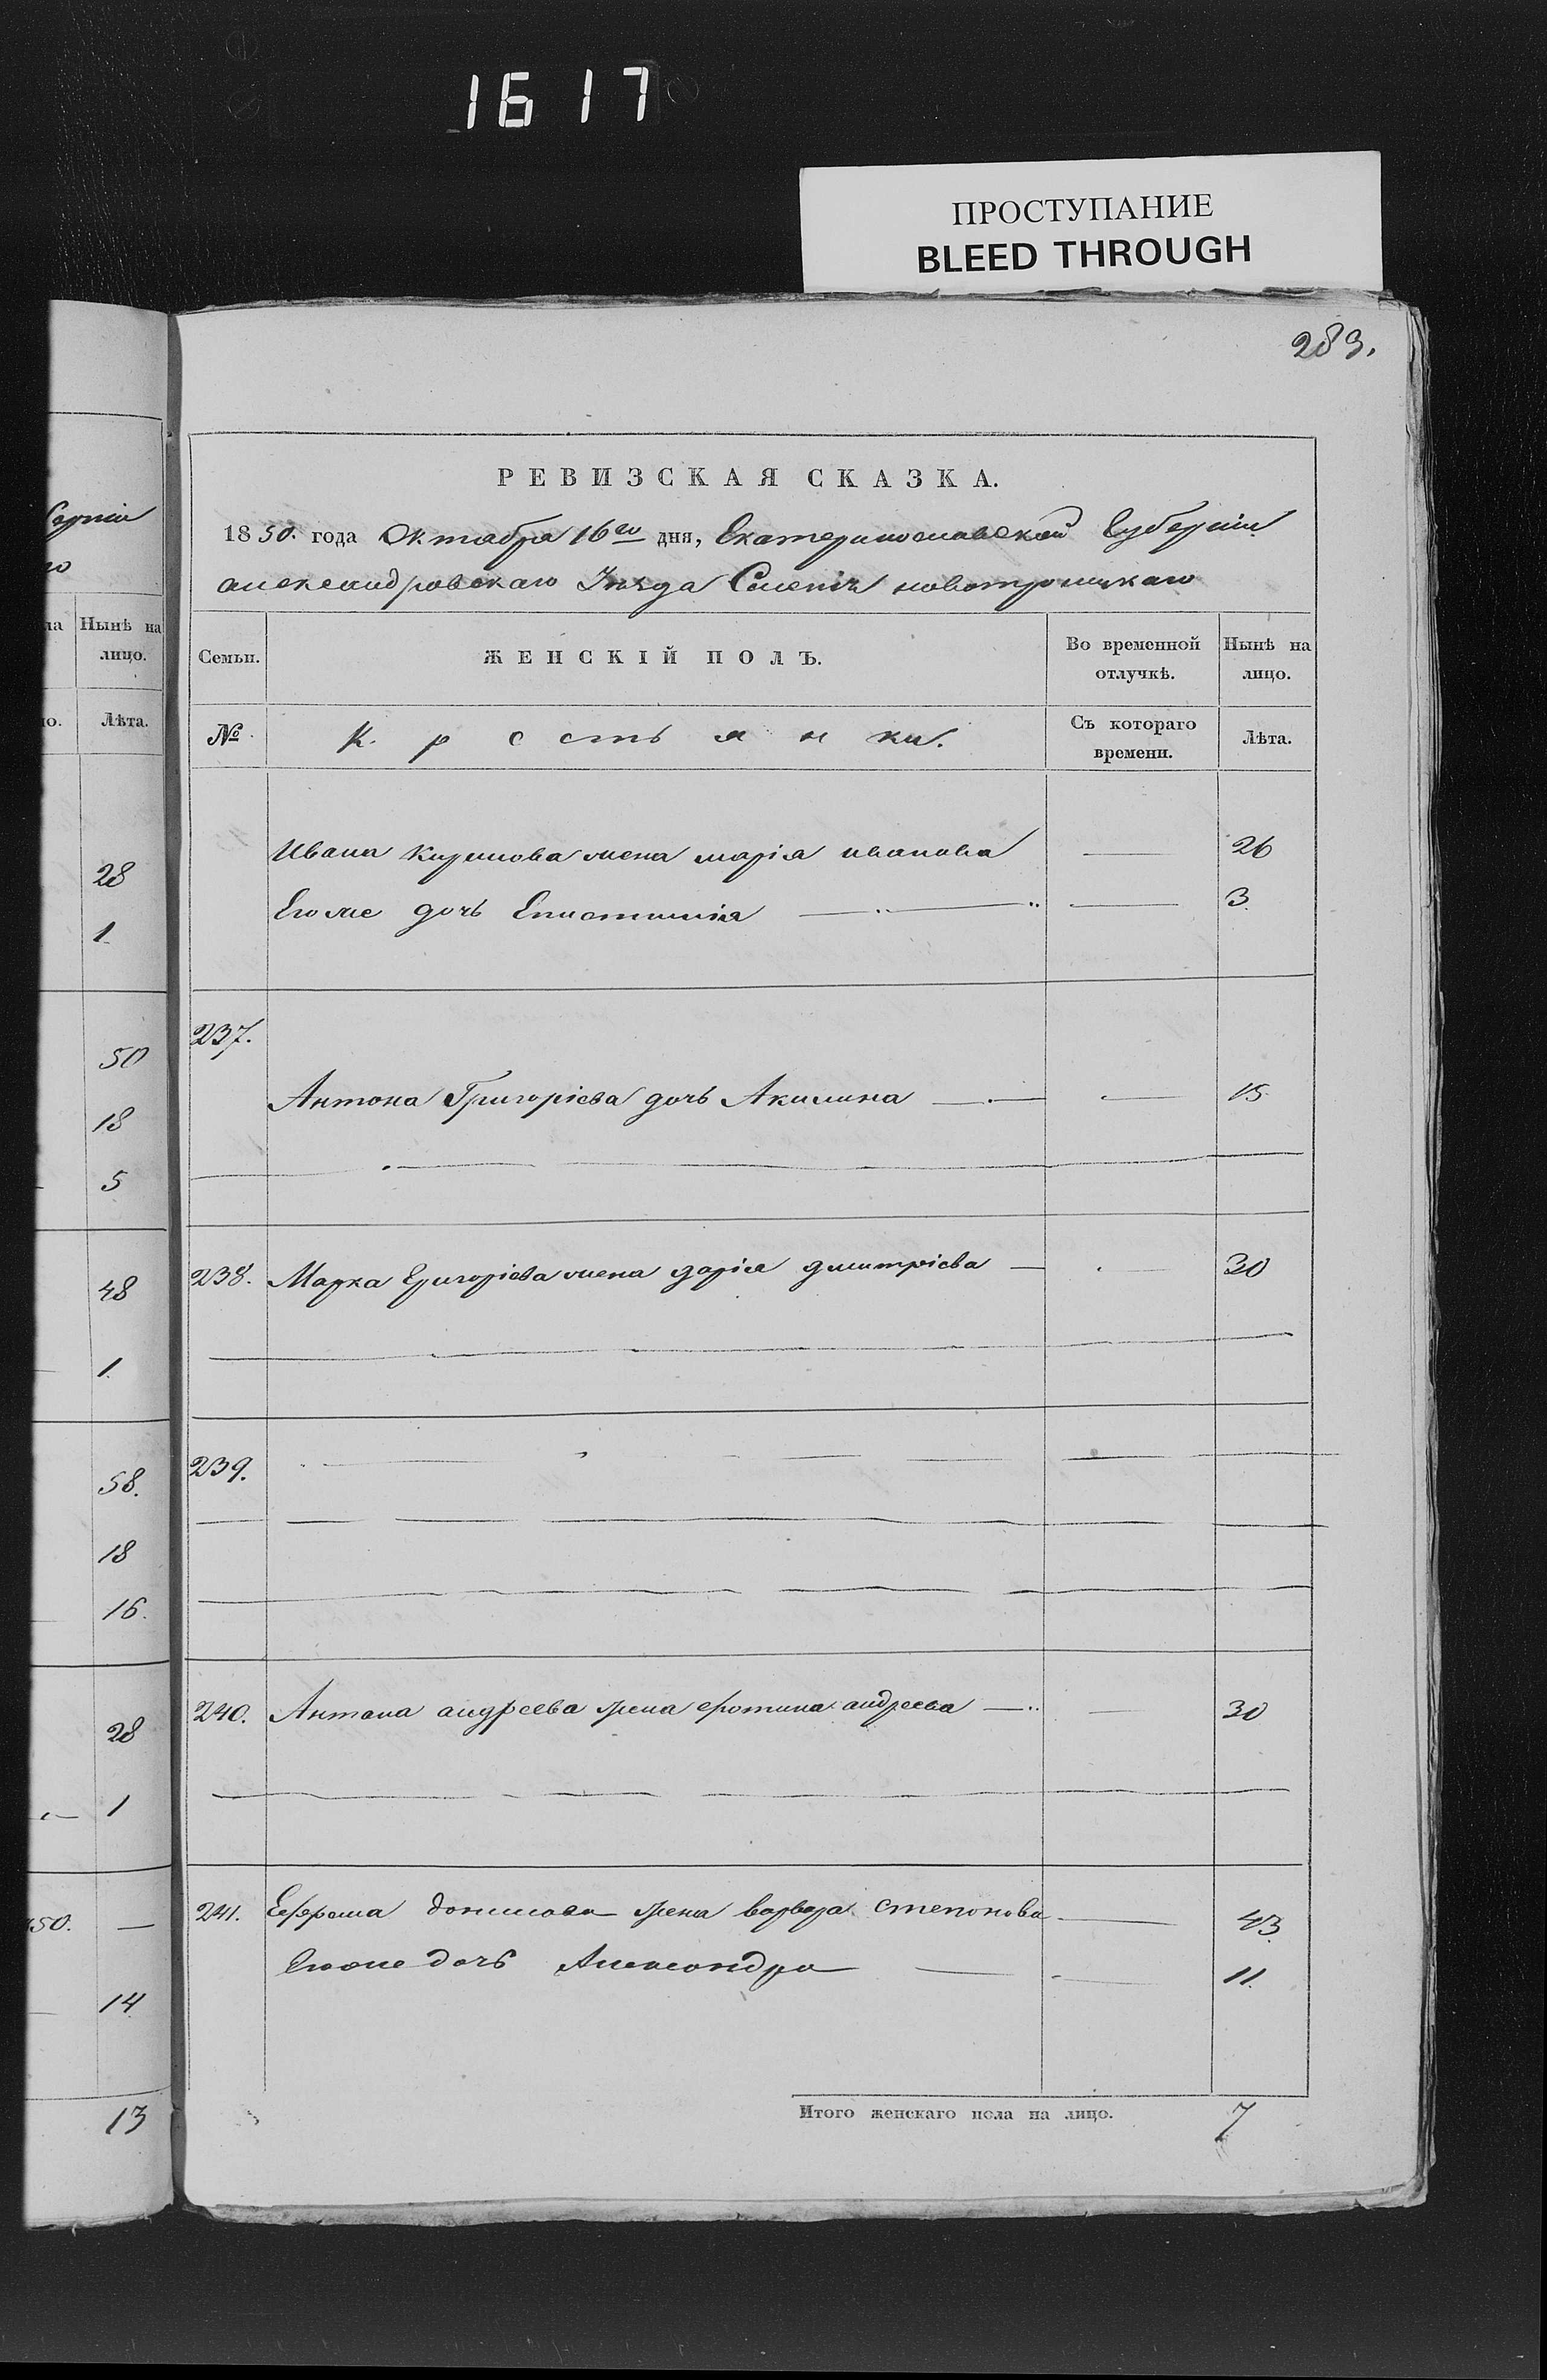 1617
ПРОСТУПАНИЕ
BLEED THROUGH
283.
Нынѣ на
лицо.
Лѣта.
28
1.
50
18
5
48
1.
58.
18
16.
28
1
14
13
РЕВИЗСКАЯ СКАЗКА.
1850. года Октября 16го дня, Екатеринославской Губерніи
александровскаго Уѣзда Селенія новотроицкаго
Семьи. ЖЕНСКІЙ ПОЛЪ. Во временной отлучкѣ. Нынѣ на лицо.
№ Крестьянки. Съ котораго времени. Лѣта.
Ивана Кирилова жена марія иванова — 26
Егоже дочь Епистимия — 3.
237.
Антона Григоріева дочь Акилина — 15
238. Марка Григоріева жена дарія дмитріева — 30
239.
240. Антона андреева жена андреева — 30
241. Ефрема жена варвара степонова — 43
Егоже дочь Александра — 11.
Итого женскаго пола на лицо. 7